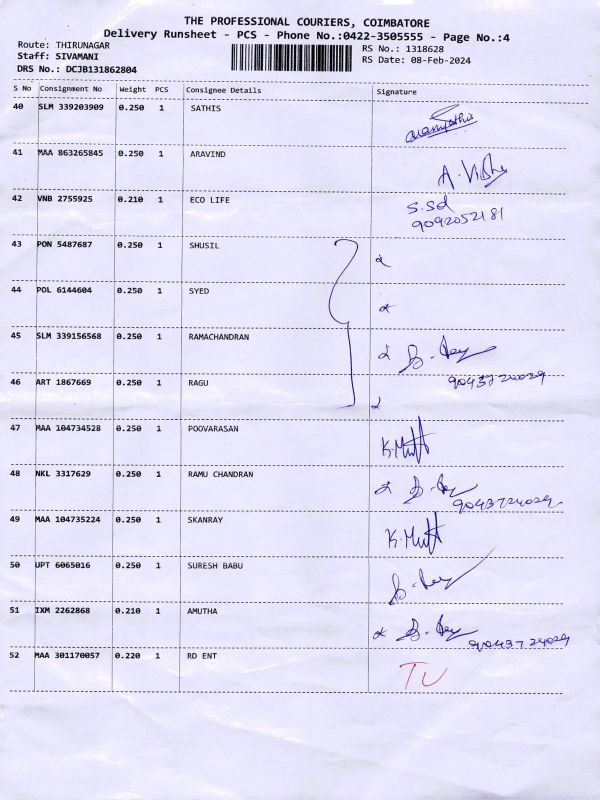 THE PROFESSIONAL COURIERS, COIMBATORE
Delivery Runsheet - PCS - Phone No.:0422-3505555 - Page No.:4
Route: THIRUNAGAR
RS No.: 1318628
Staff: SIVAMANI
RS Date: 08-Feb-2024
DRS No.: DCJB131862804
S No Consignment No Weight PCS Consignee Details Signature
40 SLM 339203909 0.250 1 SATHIS
41 MAA 863265845 0.250 1 ARAVIND
42 VNB 2755925 0.210 1 ECO LIFE S.Sd
9092052181
43 PON 5487687 0.250 1 SHUSIL
44 POL 6144604 0.250 1 SYED
45 SLM 339156568 0.250 1 RAMACHANDRAN
9043724029
46 ART 1867669 0.250 1 RAGU
47 MAA 104734528 0.250 1 POOVARASAN K.Mutt
48 NKL 3317629 0.250 1 RAMU CHANDRAN
9043724029
49 MAA 104735224 0.250 1 SKANRAY K.Mutt
50 UPT 6065016 0.250 1 SURESH BABU
51 IXM 2262868 0.210 1 AMUTHA
9043724029
52 MAA 301170057 0.220 1 RD ENT TU